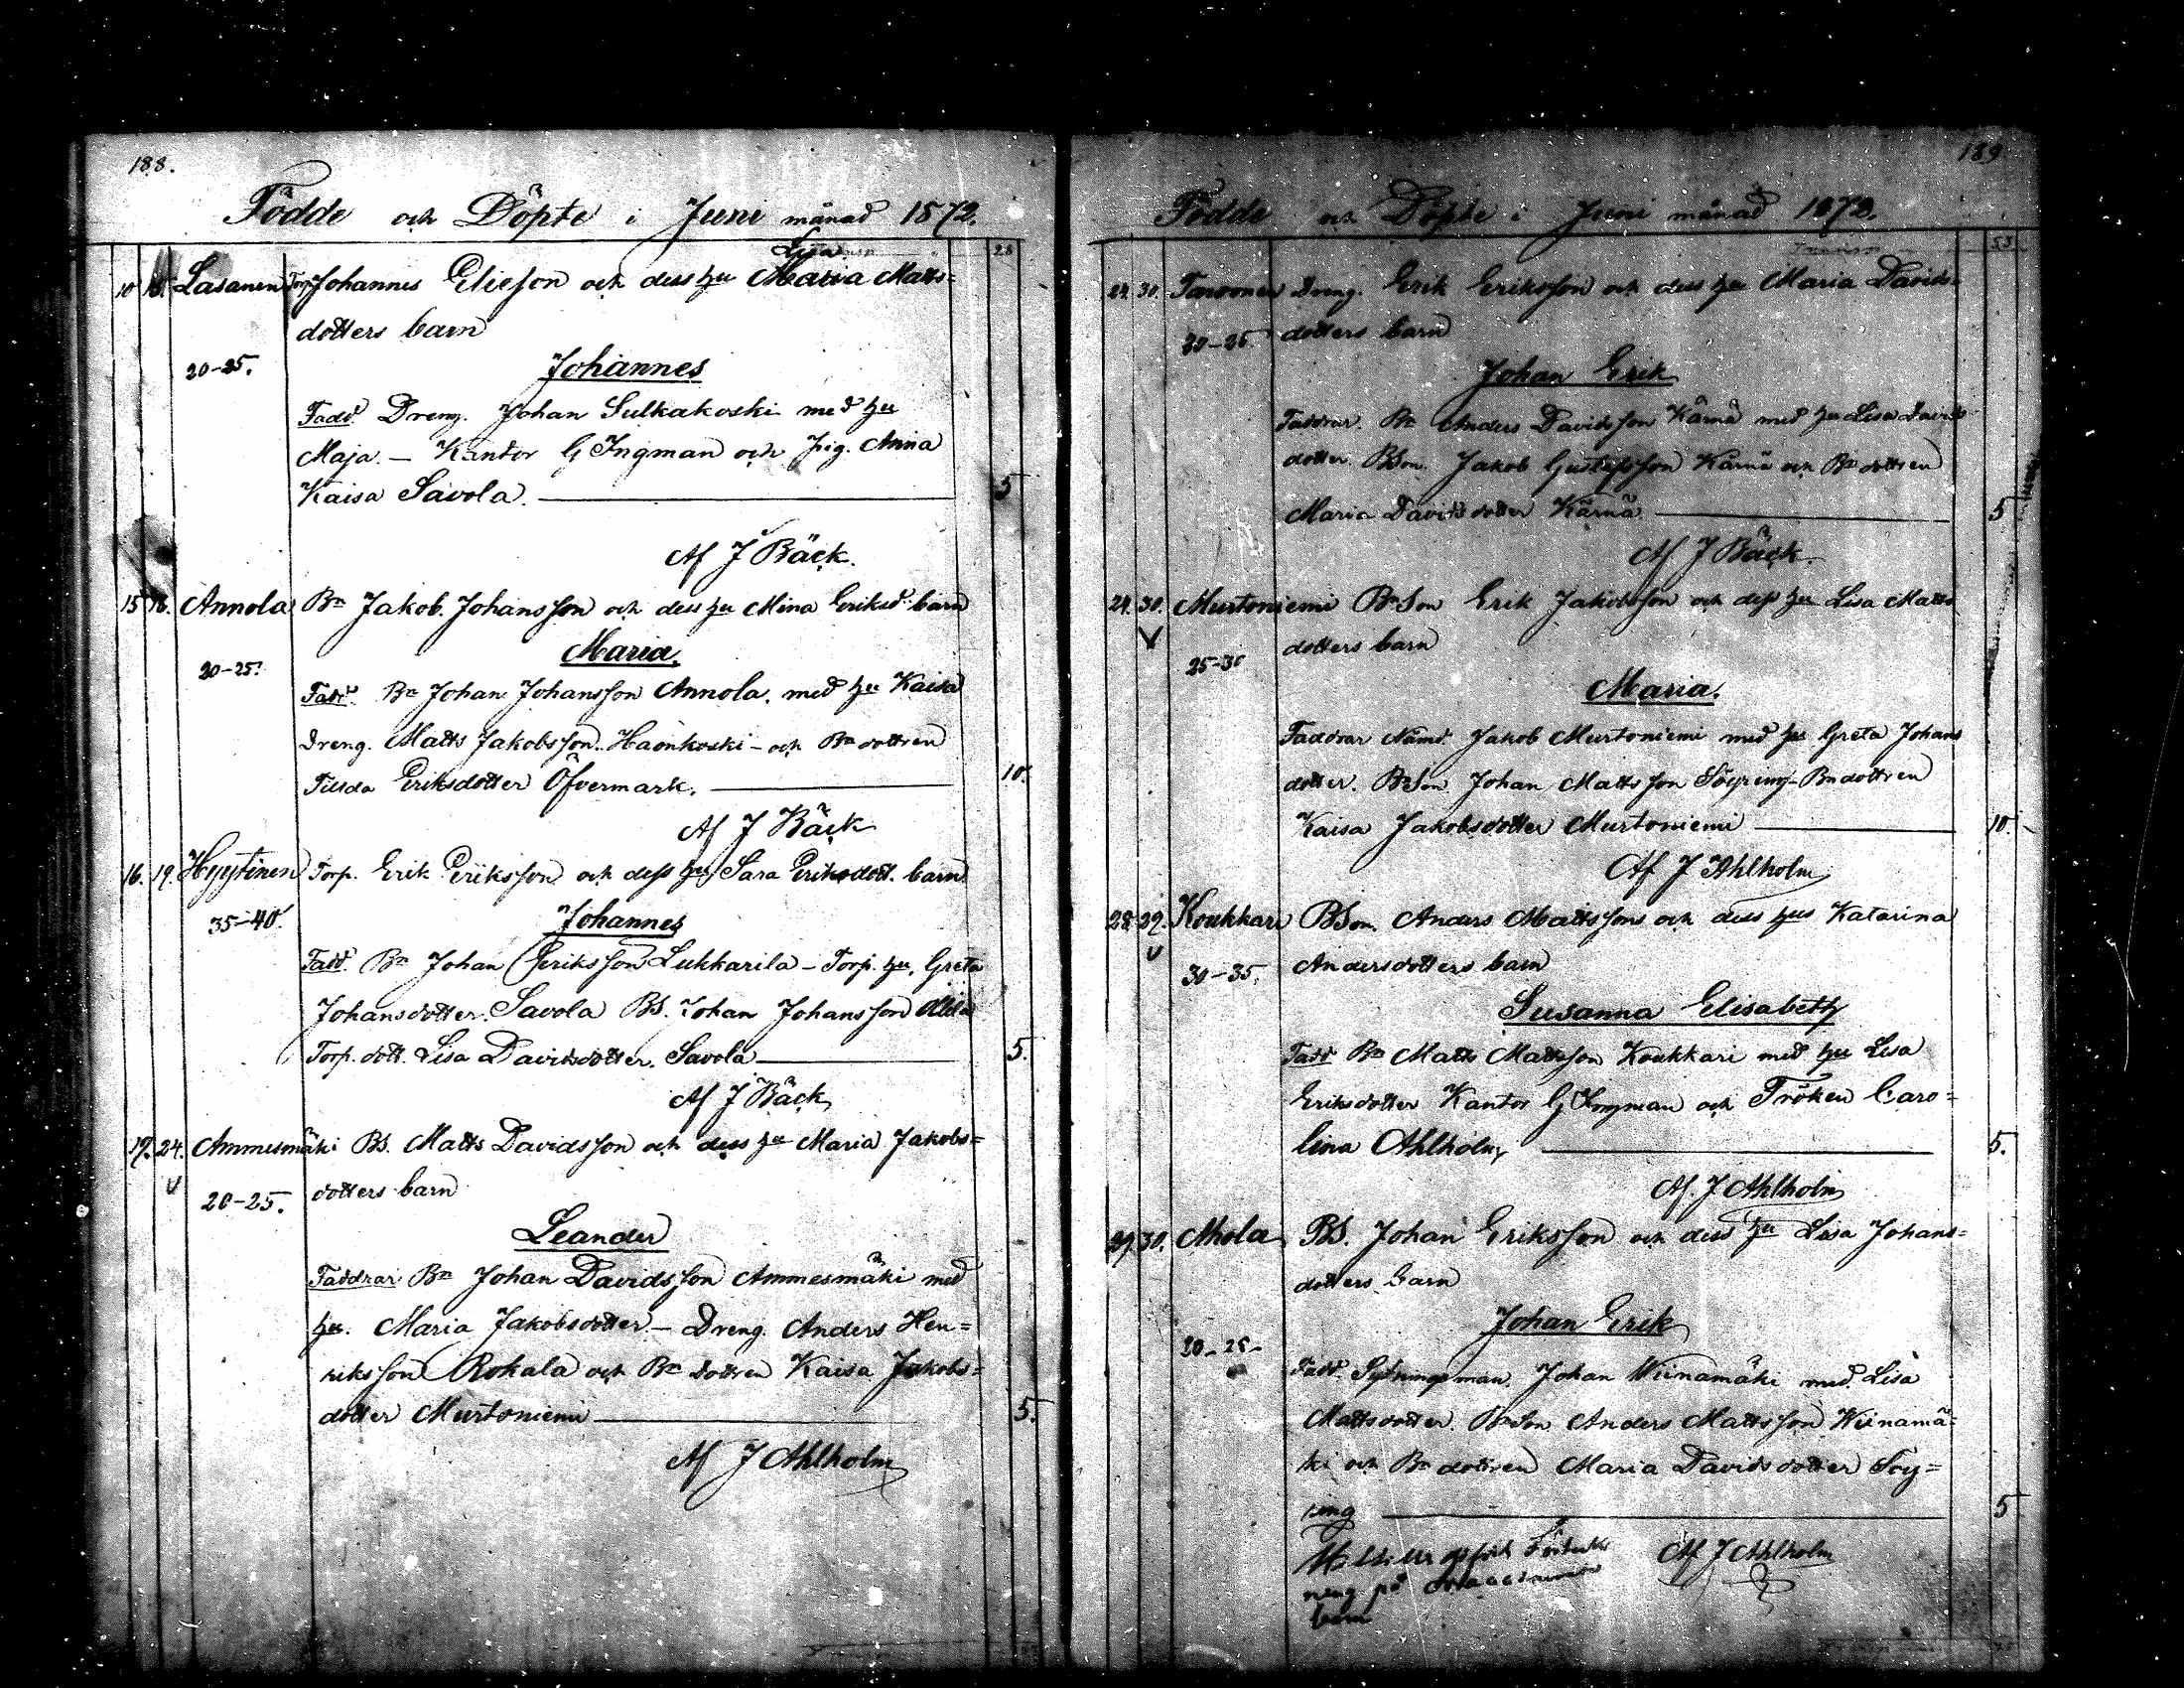 188.
Födde och Döpte i Juni månad 1872.
Lisa
10 15. Lasanen Torp. Johannes Eliesson och dess hu Maria Matts-
dotters barn
20-25. Johannes
Fadd. Dreng. Johan Sulkakoski med hu
Maja. — Kantor G Ingman och pig. Anna
Kaisa Savola. 5
Af J Bäck.
15 16. Annola Bn Jakob Johansson och dess hu Mina Eriksd. barn
Maria.
20-25.
Fadd. Bn Johan Johansson Annola. med hu Kaisa
dreng. Matts Jakobsson. — och Bn dottren
Tilda Eriksdotter Öfvermark. 10.
Af J Bäck
16. 19. Hyytinen Torp. Erik Eriksson och dess hu Sara Eriksdott. barn
35-40. Johannes
Fadd. Bn Johan Eriksson Lukkarila — Torp. hu. Greta
Johansdotter. Savola BS. Johan Johansson
Torp. dott. Lisa Davidsdotter. Savola 5.
Af J Bäck
17. 24. Ammesmäki BS. Matts Davidsson och dess hu Maria Jakobs=
20-25. dotters barn
Leander
Faddrar Bn Johan Davidsson Ammesmäki med
hu. Maria Jakobsdotter — Dreng. Anders Hen=
riksson Rokala och Bn dottren Kaisa Jakobs=
dotter Murtoniemi 5.
Af J Ahlholm
189
Födde och Döpte i Juni månad 1872.
24. 30. Dreng. Erik Eriksson och dess hu Maria Davids-
20-25 dotters barn
Johan Erik
Faddrar. Bn Anders Davidsson Kärnä med hu Lisa Davids
dotter. BSon. Jakob Gustafsson Kärnä och Bn dottren
Maria Davidsdotter Kärnä 5
Af J Bäck.
24. 30. Murtoniemi BnSon Erik Jakobsson och dess hu Lisa Matts
dotters barn
25-30
Maria.
Faddrar Nämd. Jakob Murtoniemi med hu Greta Johans
dotter. BnSon. Johan Mattsson Söyring - Bn dottren
Kaisa Jakobsdotter Murtoniemi 10.
Af J Ahlholm
28. 29. Koukkari BSon. Anders Mattssons och dess hus Katarina
30-35. Andersdotters barn
Susanna Elisabeth
Fadd Bn Matts Mattsson Koukkari med hu Lisa
Eriksdotter Kantor G Ingman och Fröken Caro=
lina Ahlholm 5.
Af. J Ahlholm
29. 30. Ahola BS. Johan Eriksson och dess hu Lisa Johans=
dotters barn
Johan Erik
20-25-
Fadd. Sytningsman. Johan Wiinamäki med. Lisa
Mattsdotter. BnSon Anders Mattsson Wiinamä=
ki och Bn dottren Maria Davidsdotter Söy=
ring 5
Af J Ahlholm
barn